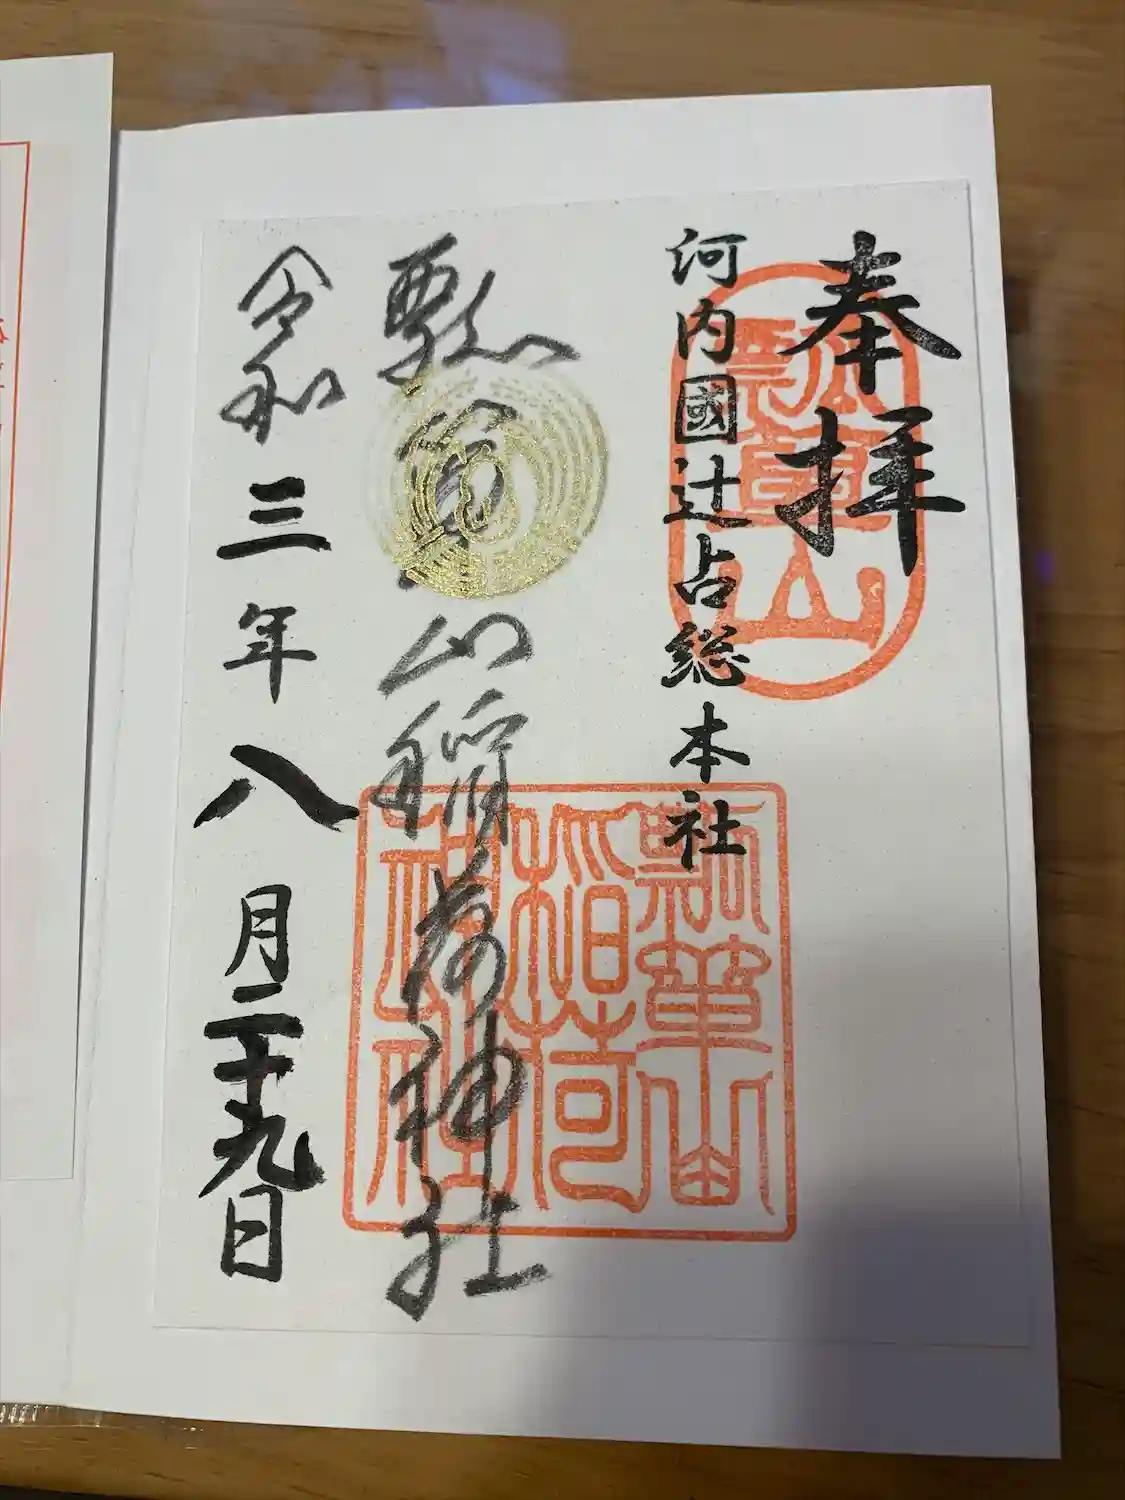 奉拝
河内國辻占総本社
瓢箪山
瓢箪山稲荷神社
瓢箪山稲荷神社
令和三年八月二十九日